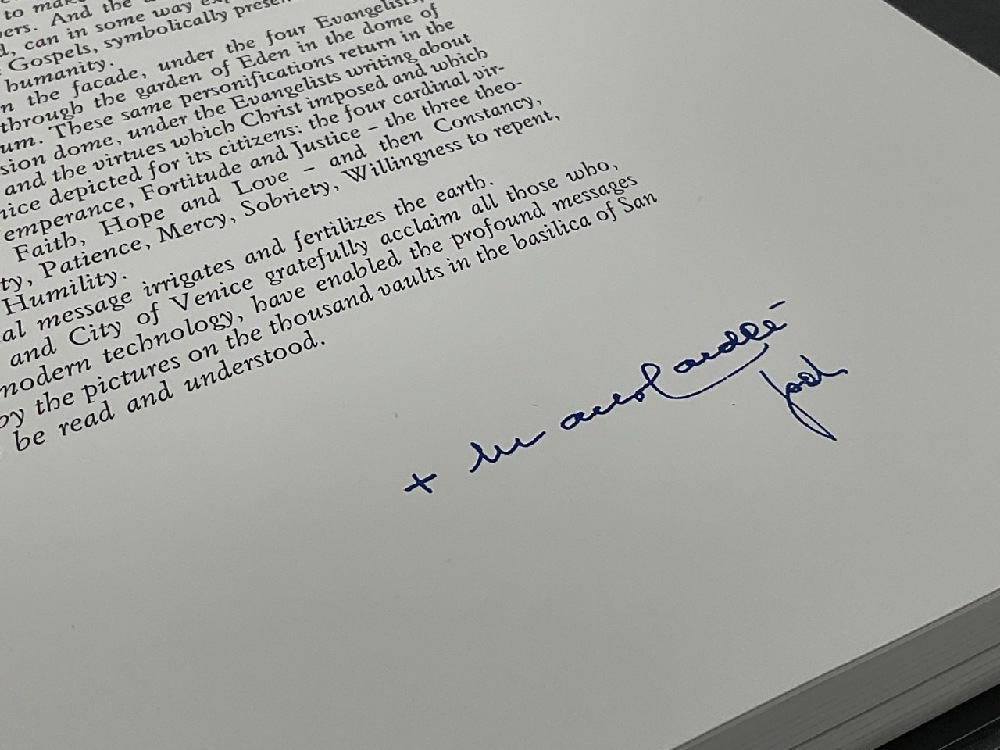 to make
ers. And the
, can in some way
Gospels, symbolically
humanity.
n the facade, under the four Evangelists,
through the garden of Eden in the dome of
um. These same personifications return in the
sion dome, under the Evangelists writing about
and the virtues which Christ imposed and which
nice depicted for its citizens: the four cardinal vir-
emperance, Fortitude and Justice – the three theo-
Faith, Hope and Love – and then Constancy,
ty, Patience, Mercy, Sobriety, Willingness to repent,
Humility.
al message irrigates and fertilizes the earth.
and City of Venice gratefully acclaim all those who,
modern technology, have enabled the profound messages
by the pictures on the thousand vaults in the basilica of San
be read and understood.